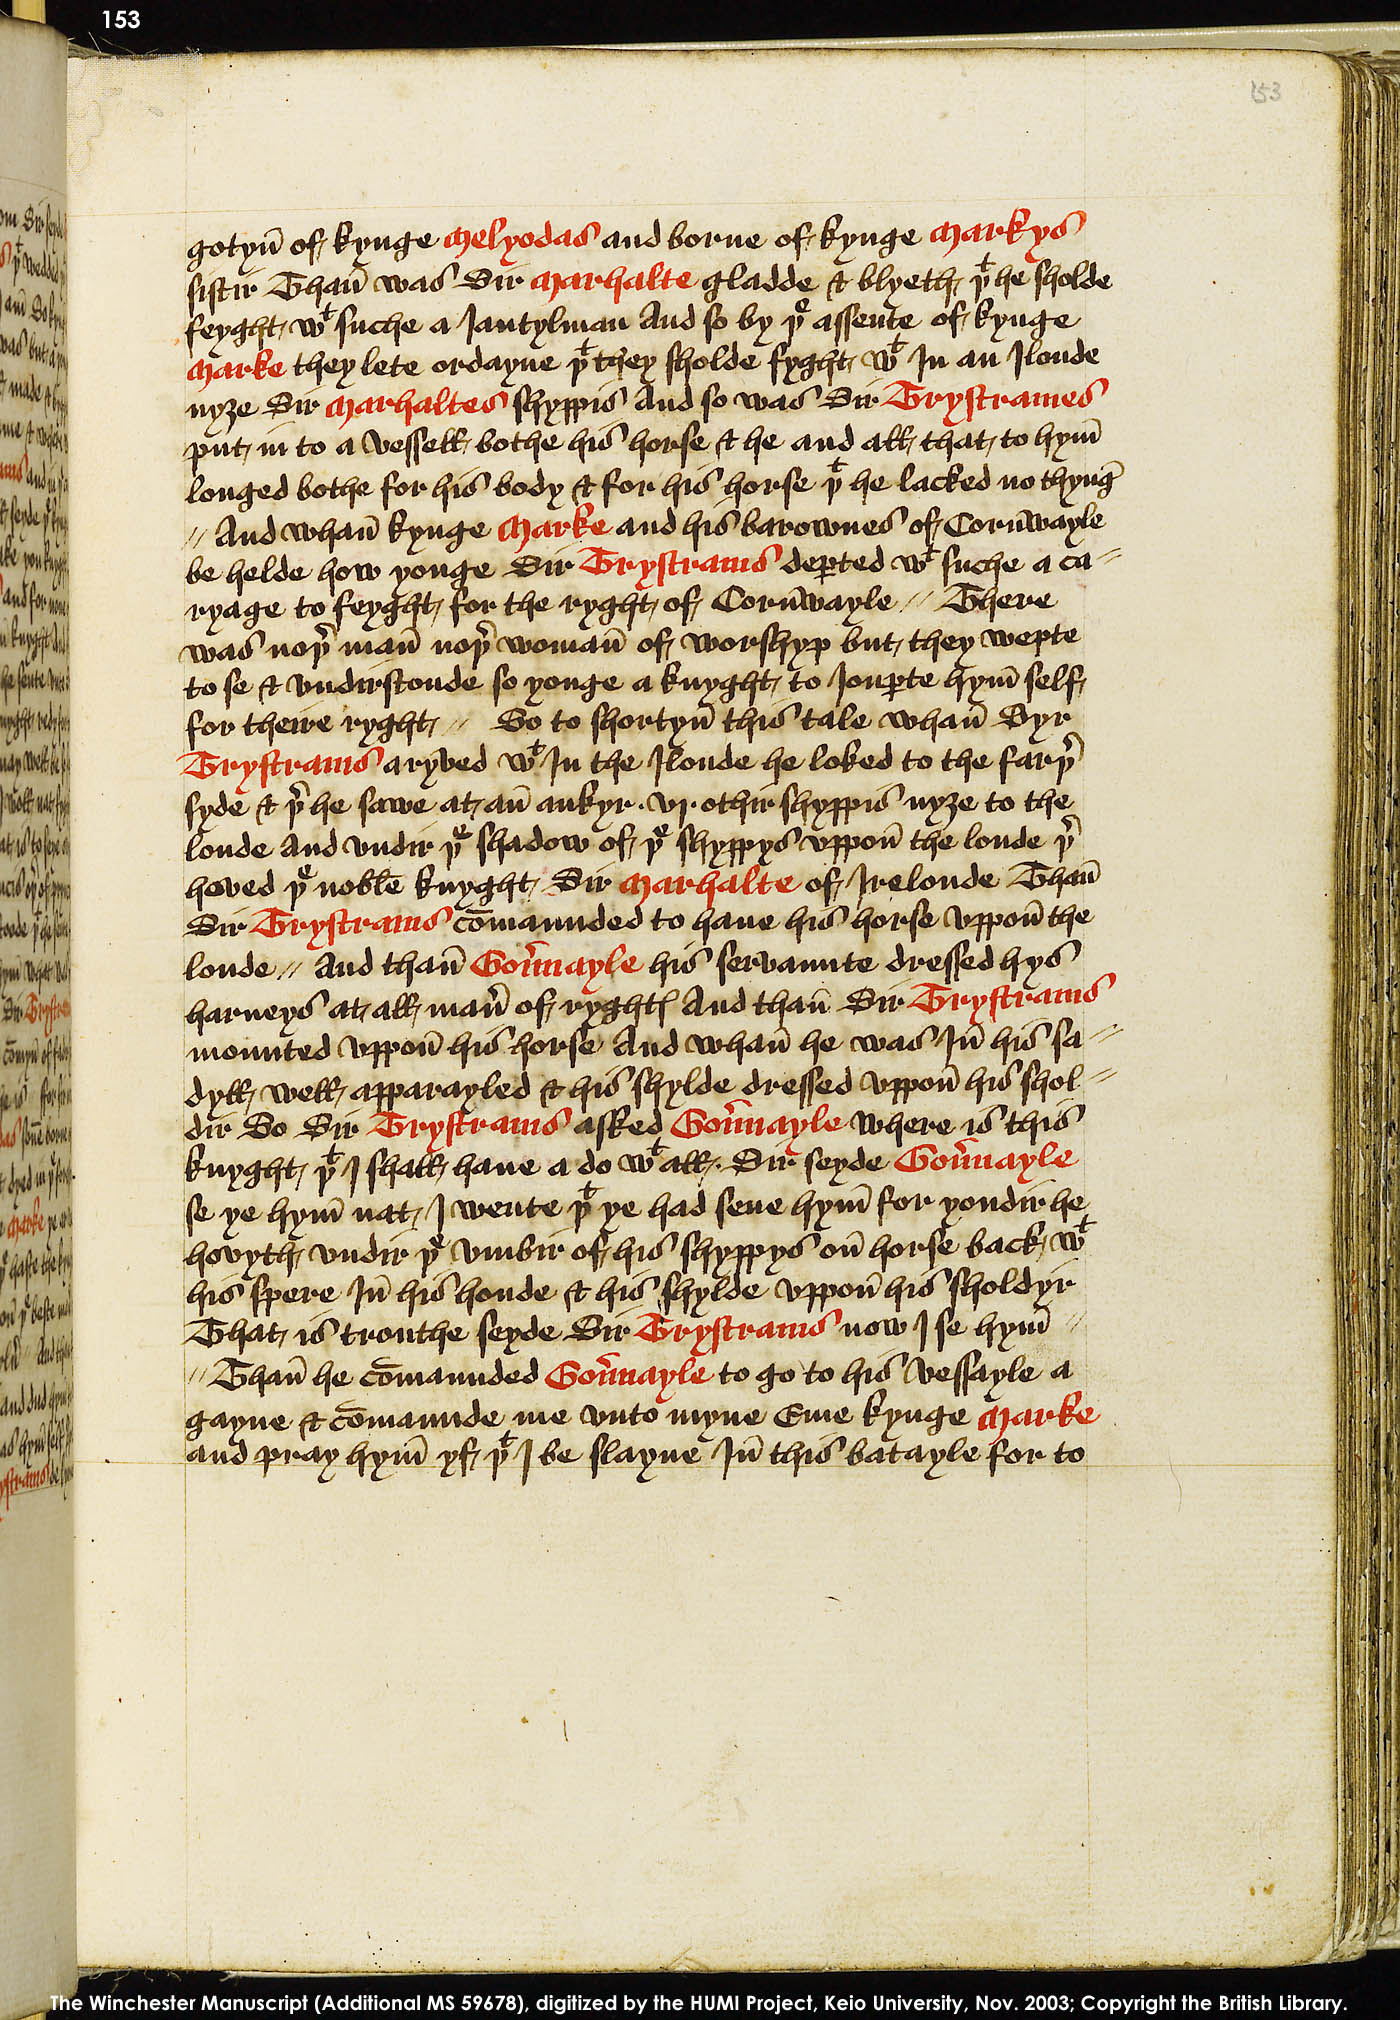 153
153
gotyn̄ of kynge Melyodas and borne of kynge Markys
sistir Than̄ was Sir Marhalte gladde & blyeth þͭ he sholde
feyght wͭ suche a Jantylman And so by þᵉ assente of kynge
Marke they lete ordayne þͭ they sholde fyght wͭ In an Ilonde
nyȝe Sir Marhaltes shyppis And so was Sir Trystrames
put in to a vessell bothe his horse & he and all that to hym̄
longed bothe for his body & for his horse þͭ he lacked no thynḡ
// And whan̄ kynge Marke and his barownes of Corn̄wayle
be helde how yonge Sir Trystrams dep̲ted wͭ suche a ca⸗
ryage to feyght for the ryght of Corn̄wayle // There
was noþʳ man̄ noþʳ woman̄ of worshyp but they wepte
to se & vndirstonde so yonge a knyght to Joup̲te hym̄ self
for theire ryght // So to shortyn̄ this tale whan̄ Syr
Trystrams aryved wͭ In the Ilonde he loked to the farþʳ
syde & þʳ he sawe at an̄ ankyr . vj . othir shyppis nyȝe to the
londe And vndir þᵉ shadow of þᵉ shyppys vppon̄ the londe þʳ
hoved þᵉ noble knyght Sir Marhalte of Irelonde Than̄
Sir Trystrams cōmaunded to haue his horse vppon̄ the
londe // And than̄ Gou̓nayle his servaunte dressed hys
harneys at all man̓ of ryghtꝭ And than̄ Sir Trystrams
mounted vppon̄ his horse And whan̄ he was In̄ his sa⸗
dyll well apparayled & his shylde dressed vppon̄ his shol⸗
dir So Sir Trystrams asked Gou̓nayle where is this
knyght þͭ I shall haue a do wͭ all . Sir seyde Gou̓nayle
se ye hym̄ nat I wente þͭ ye had sene hym̄ for yondir he
hovyth vndir þᵉ vmbir of his shyppys on̄ horse back wͭ
his spere In̄ his honde & his shylde vppon̄ his sholdyr
That is trouthe seyde Sir Trystrams now I se hym̄ //
// Than̄ he cōmaunded Gou̓nayle to go to his vessayle a
gayne & cōmaunde me vnto myne Eme kynge Marke
and pray hym̄ yf þͭ I be slayne In̄ this batayle for to
The Winchester Manuscript (Additional MS 59678), digitized by the HUMI Project, Keio University, Nov. 2003; Copyright the British Library.